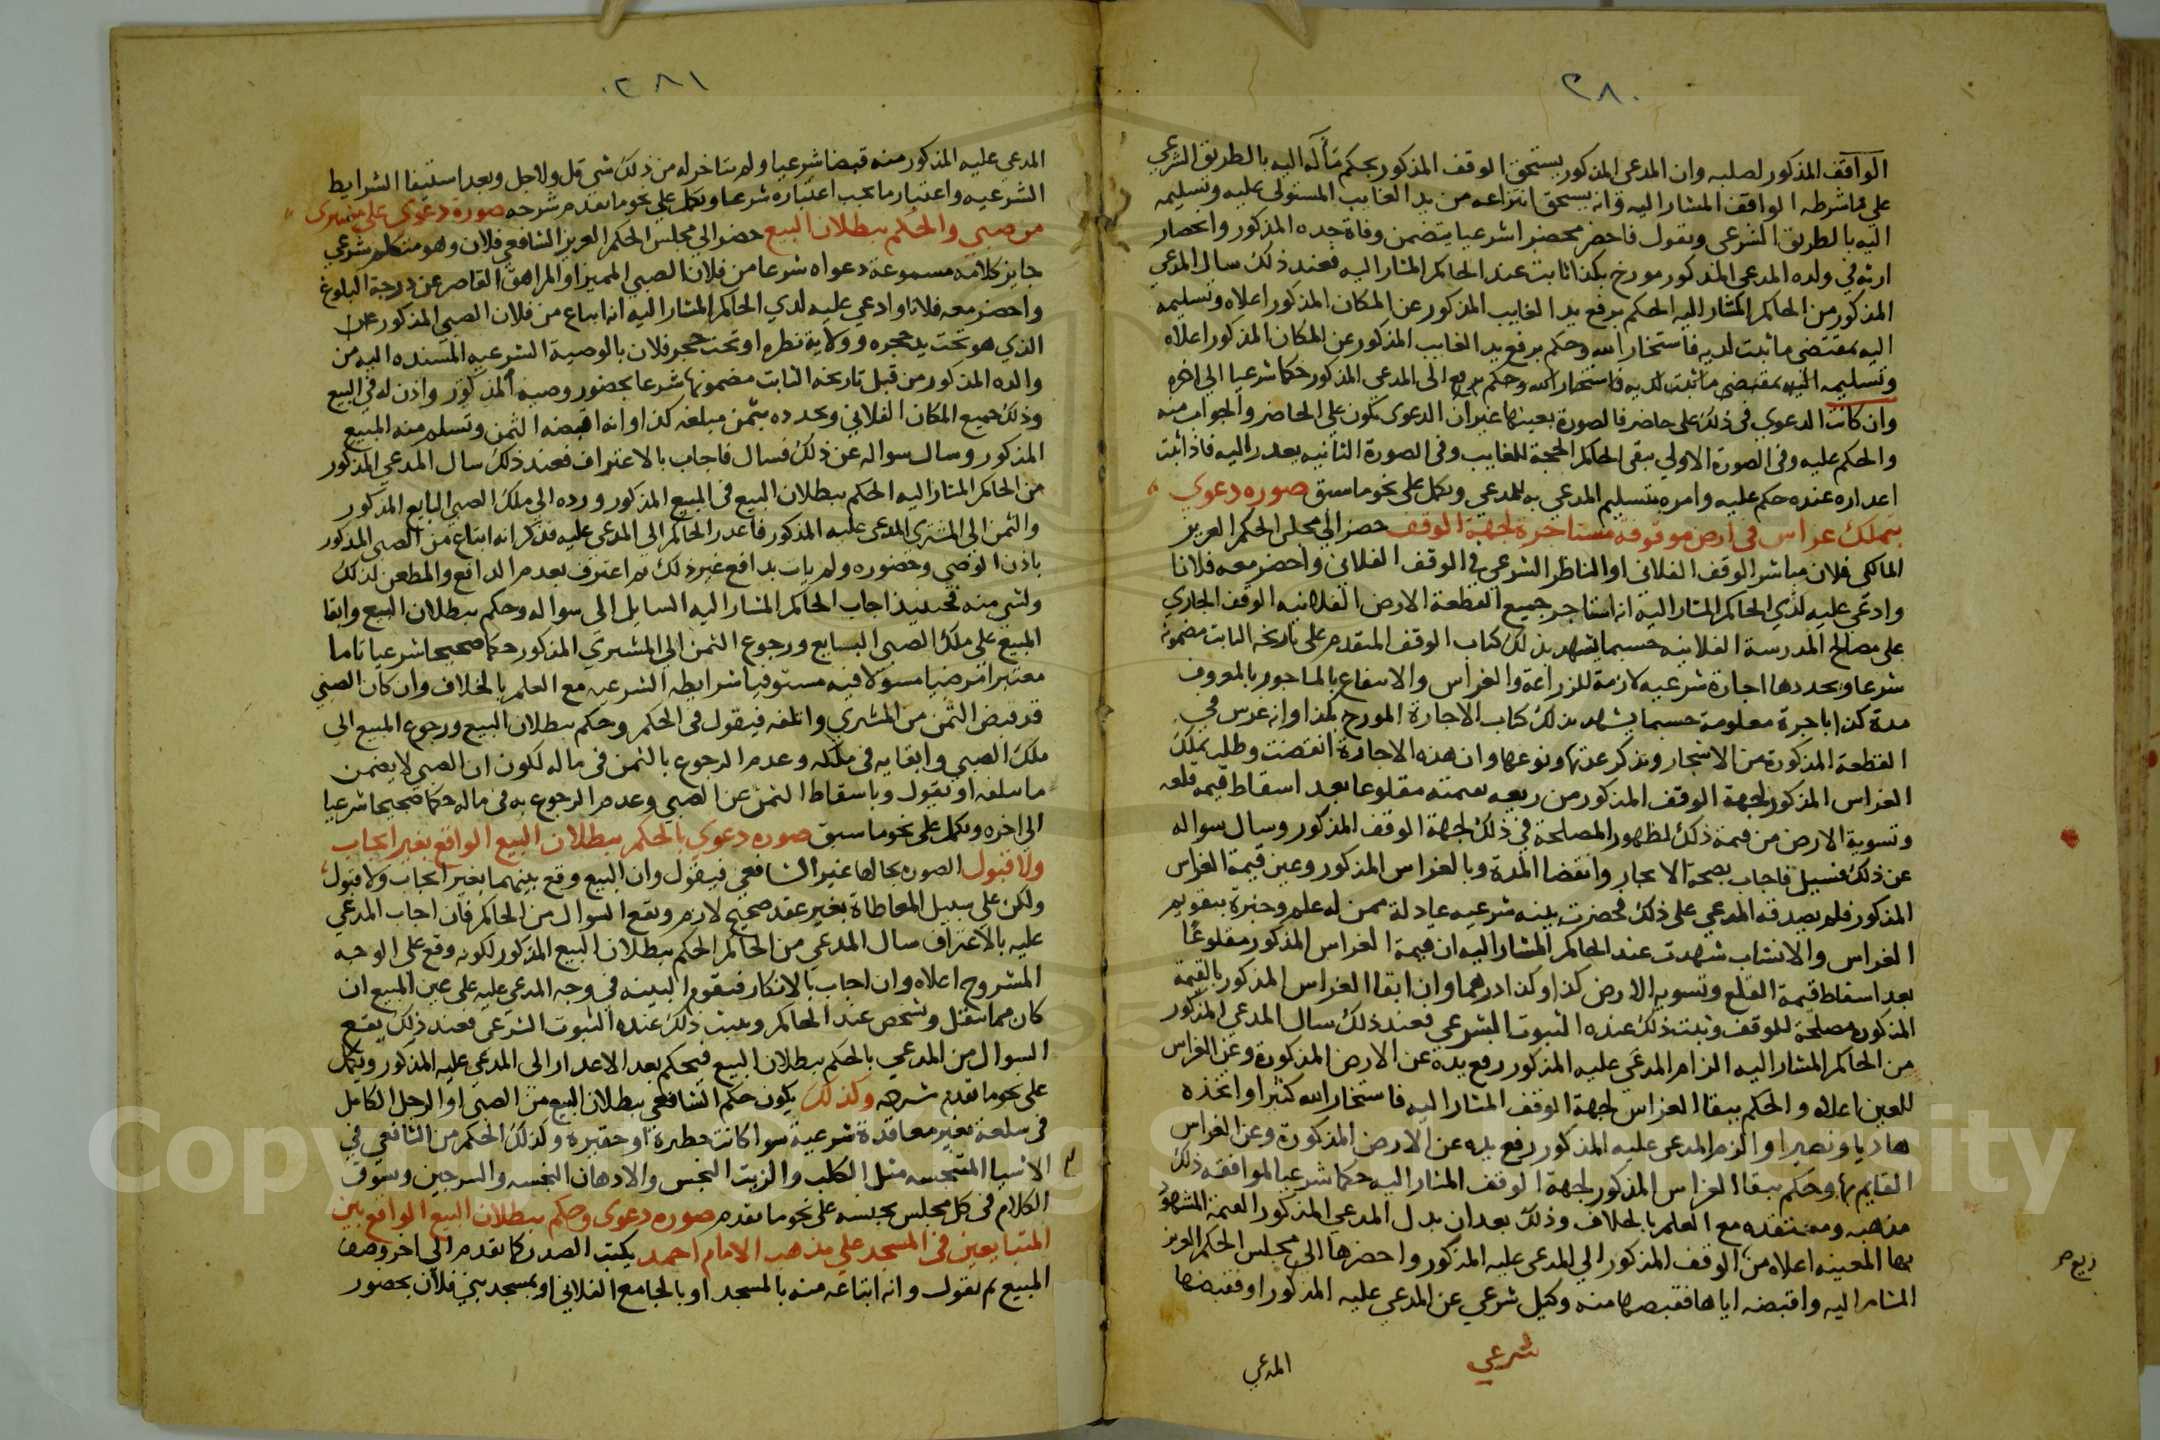 ٣٨٠
الواقف المذكور لصلبه وان المدعي المذكور يستحق الوقف المذكور بحكم مآله اليه بالطريق الشرعي
علي ما شرطه الواقف المشار اليه وانه يستحق انتزاعه من يد الغايب المستولي عليه وتسليمه
اليه بالطريق الشرعي ويقول فاحضر محضرا شرعيا يتضمن وفاة جده المذكور وانحصار
ارثه في ولده المدعي المذكور مورخ بكذا ثابت عند الحاكم المشار اليه فعند ذلك سال المدعي
المذكور من الحاكم المشار اليه الحكم برفع يد الغايب المذكور عن المكان المذكور اعلاه وتسليمه
اليه بمقتضي ما ثبت لديه فاستخار الله وحكم برفع يد الغايب المذكور عن المكان المذكور اعلاه
وتسليمه اليه بمقتضي ما ثبت لديه فاستخار الله وحكم الى المدعي المذكور حكما شرعيا الي اخره
وان كانت الدعوي في ذلك علي حاضر فالصورة بعينها غير ان الدعوي تكون علي الحاضر والجواب منه
والحكم عليه وفي الصورة الاولي يبقي الحاكم الحجة للغايب وفي الصورة الثانيه يعدر اليه فاذا ثبت
اعداره عنده حكم عليه وامره بتسليم المدعي به للمدعي ويكمل علي نحو ما سبق صوره دعوي
بتملك غراس في ارض موقوفة مستاجرة لجهة الوقف حضر الي مجلس الحكم العزيز
المالكي فلان مباشر الوقف الفلاني او الناظر الشرعي في الوقف الفلاني واحضر معه فلانا
وادعي عليه لدي الحاكم المشار اليه انه استاجر جميع القطعة الارض الفلانيه الوقف الجاري
علي مصالح المدرسة الفلانيه حسبما يشهد بذلك كتاب الوقف المتقدم علي تاريخه الثابت مضمونه
شرعا ويحددها اجارة شرعيه لازمة للزراعة والغراس والانتفاع بالماجور بالمعروف
مدة كذا باجرة معلومة حسبما يشهد بذلك كتاب الاجارة المورخ بكذا وانه غرس في
القطعة المذكورة من الاشجار ويذكر عدتها ونوعها وان هذه الاجارة انقضت وطلب تملك
الغراس المذكور لجهة الوقف المذكور من ريعه بقيمته مقلوعا بعد اسقاط قيمه قلعه
وتسوية الارض من قيمة ذلك لظهور المصلحة في ذلك لجهة الوقف المذكور وسال سواله
عن ذلك فسيل فاجاب بصحة الايجار وانقضا المدة وبالغراس المذكور وعين قيمة الغراس
المذكور فلم يصدقه المدعي علي ذلك فحضرت بينه شرعيه عادلة ممن له علم وخبرة بتقويم
الغراس والانشاب شهدت عند الحاكم المشار اليه ان قيمة الغراس المذكور مقلوعا
بعد اسقاط قيمة القلع وتسويه الارض كذا وكذا درهما وان ابقا الغراس المذكور بالقيمة
المذكوره مصلحة للوقف وثبت ذلك عنده الثبوت الشرعي فعند ذلك سال المدعي المذكور
من الحاكم المشار اليه الزام المدعي عليه المذكور رفع يده عن الارض المذكورة وعن الغراس
المعين اعلاه والحكم ببقا الغراس لجهة الوقف المشار اليه فاستخار الله كثيرا واتخذه
هاديا ونصيرا والزم المدعي عليه المذكور رفع يده عن الارض المذكورة وعن الغراس
القايم بها وحكم ببقا الغراس المذكور لجهة الوقف المشار اليه حكما شرعيا لموافقه ذلك
مذهبه ومعتقده مع العلم بالخلاف وذلك بعد ان بدل المدعي المذكور القيمة المشهود
بها المعينه اعلاه من الوقف المذكور الي المدعي عليه المذكور واحضرها الي مجلس الحكم العزيز
ريع صح
المشار اليه واقبضه اياها فقبضها منه وكيل شرعي عن المدعي عليه المذكور او فقبضها
شرعي
المدعي
٣٨١
المدعي عليه المذكور منه قبضا شرعيا ولم يتاخر له من ذلك شي قل ولا جل وبعد استيفا الشرايط
الشرعيه واعتبار ما يجب اعتباره شرعا ويكمل علي نحو ما تقدم شرحه صورة دعوي علي من شري
من صبي والحكم ببطلان البيع حضر الي مجلس الحكم العزيز الشافعي فلان وهو متكلم شرعي
جايز كلامه مسموعة دعواه شرعا من فلان الصبي المميز او المراهق القاصر عن درجة البلوغ
واحضر معه فلانا وادعي عليه لدي الحاكم المشار اليه انه ابتاع من فلان الصبي المذكور
الذي هو تحت يد حجره وولاية نظره او تحت حجر فلان بالوصية الشرعيه المسنده اليه من
والده المذكور من قبل تاريخه الثابت مضمونها شرعا بحضور وصيه المذكور واذن له في البيع
وذلك جميع المكان الفلاني ويحدده بثمن مبلغه كذا وانه اقبضه الثمن وتسلم منه المبيع
المذكور وسال سواله عن ذلك فسال فاجاب بالاعتراف فعند ذلك سال المدعي المذكور
من الحاكم المشار اليه الحكم ببطلان البيع في المبيع المذكور ورده الي ملك الصبي البايع المذكور
والثمن الي المشتري المدعي عليه المذكور فاعدر الحاكم الي المدعي عليه فذكر انه ابتاع من الصبي المذكور
باذن الوصي وحضوره ولم يات بدافع غير ذلك ثم اعترف بعدم الدافع والمطعن لذلك
ولشي منه فحينيذ اجاب الحاكم المشار اليه السايل الي سواله وحكم ببطلان البيع وابقا
المبيع علي ملك الصبي البايع ورجوع الثمن الي المشتري المذكور حكما صحيحا شرعيا تاما
معتبرا مرضيا مسولا فيه مستوفيا شرايطه الشرعيه مع العلم بالخلاف وان كان الصبي
قد قبض الثمن من المشتري واتلفه فيقول في الحكم وحكم ببطلان البيع ورجوع المبيع الي
ملك الصبي وابقايه في ملكه وعدم الرجوع بالثمن في ماله لكون ان الصبي لا يضمن
ما يتلفه او يقول وباسقاط الثمن عن الصبي وعدم الرجوع به في ماله حكما صحيحا شرعيا
الي اخره ويكمل علي نحو ما سبق صوره دعوي بالحكم ببطلان البيع الواقع بغير ايجاب
ولا قبول الصوره بحالها عند الشافعي فيقول وان البيع وقع بينهما بغير ايجاب ولا قبول
ولكن علي سبيل المعاطاة بغير عقد صحيح لازم ويقع السوال من الحاكم فان اجاب المدعي
عليه بالاعتراف سال المدعي من الحاكم الحكم ببطلان البيع المذكور لكونه وقع علي الوجه
المشروح اعلاه وان اجاب بالانكار فتقوم البينه في وجه المدعي عليه علي عين المبيع ان
كان مما ينقل وتشخص عند الحاكم ويثبت ذلك عنده الثبوت الشرعي فعند ذلك يقع
السوال من المدعي بالحكم ببطلان البيع فيحكم بعد الاعدار الي المدعي عليه المذكور ويكمل
علي نحو ما تقدم شرحه وكذلك يكون حكم الشافعي ببطلان البيع من الصبي او الرجل الكامل
في سلعة بغير معاقدة شرعية سوا كانت خطيرة او حقيرة وكذلك الحكم من الشافعي في
الاشيا المتنجسه مثل الكلب والزيت النجس والادهان النجسه والسرجين ويسوق
الكلام في كل مجلس بحبسه علي نحو ما تقدم صوره دعوي وحكم ببطلان البيع الواقع بين
المتبايعين في المسجد علي مذهب الامام احمد يكتب الصدر كما تقدم الي اخر وصف
المبيع ثم يقول وانه ابتاعه منه بالمسجد او بالجامع الفلاني او بمسجد بني فلان بحضور
Copyright © King Saud University